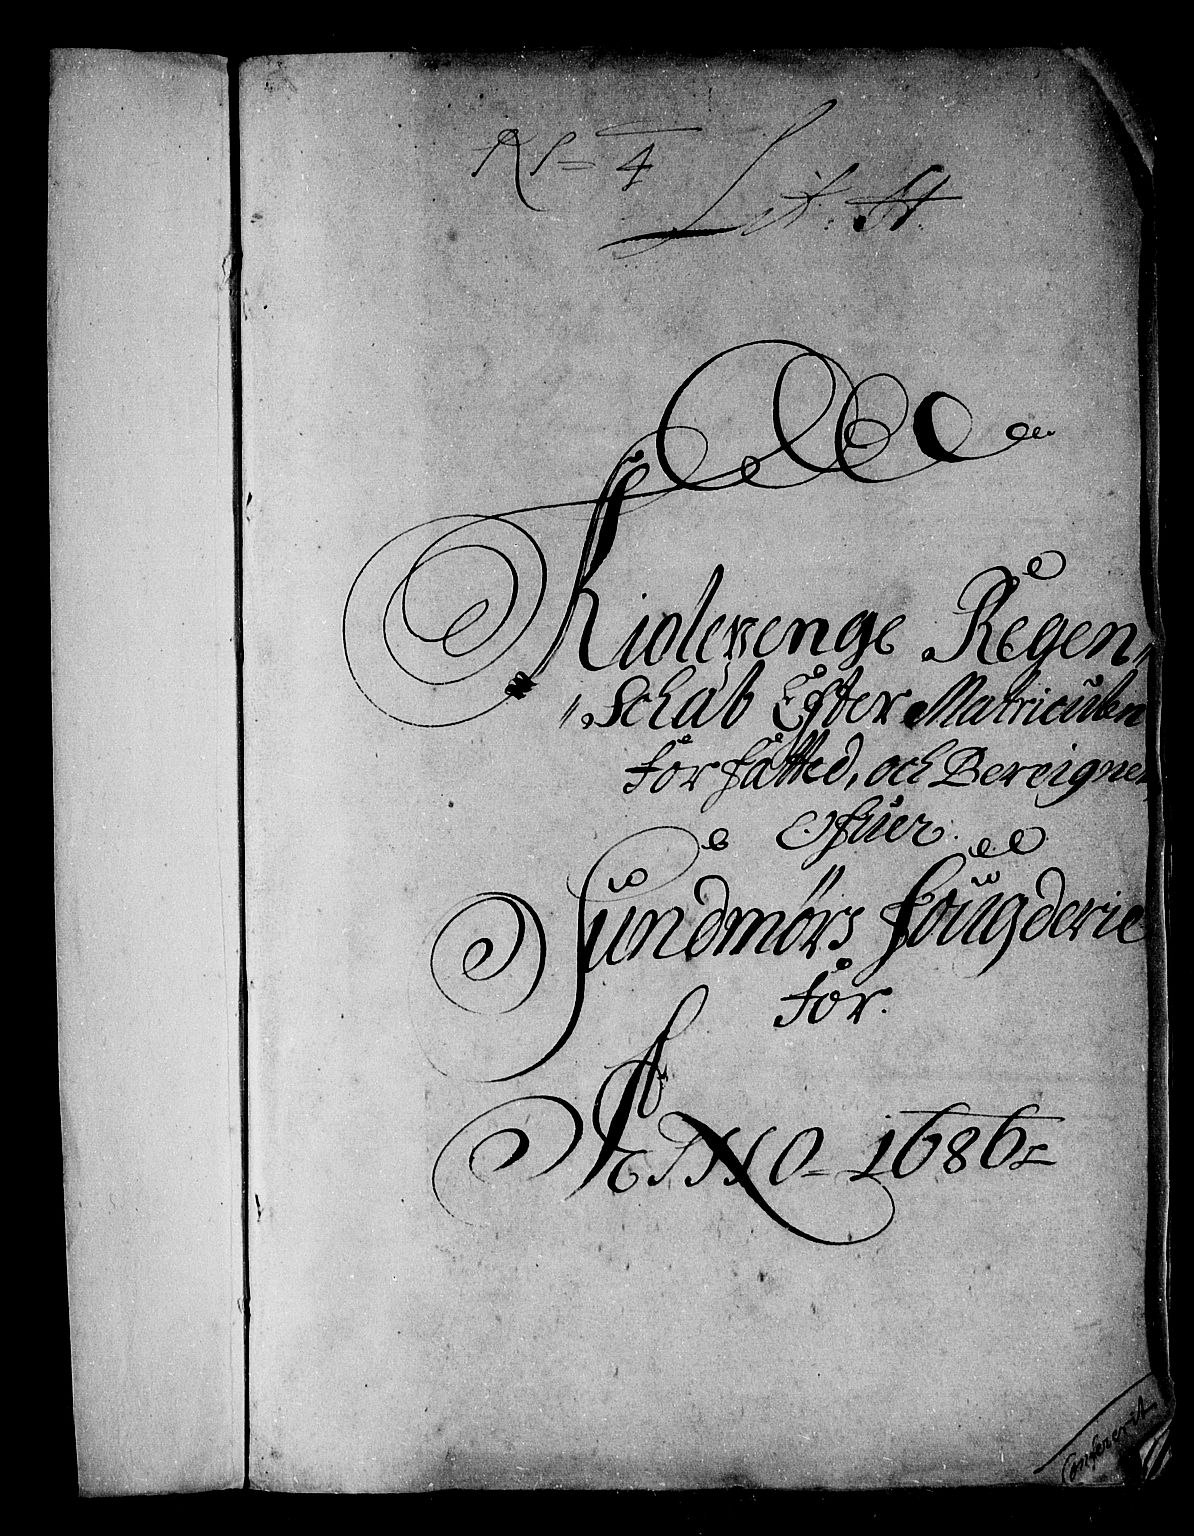 N 1 = 4
Lit: A.
Riolezenge Regen„
„Schab Efter Matriculen
forfatted, och Bereignet
Ofuer.
Sundmörs Fougderie
for.
ANNO = 1686
Confererit